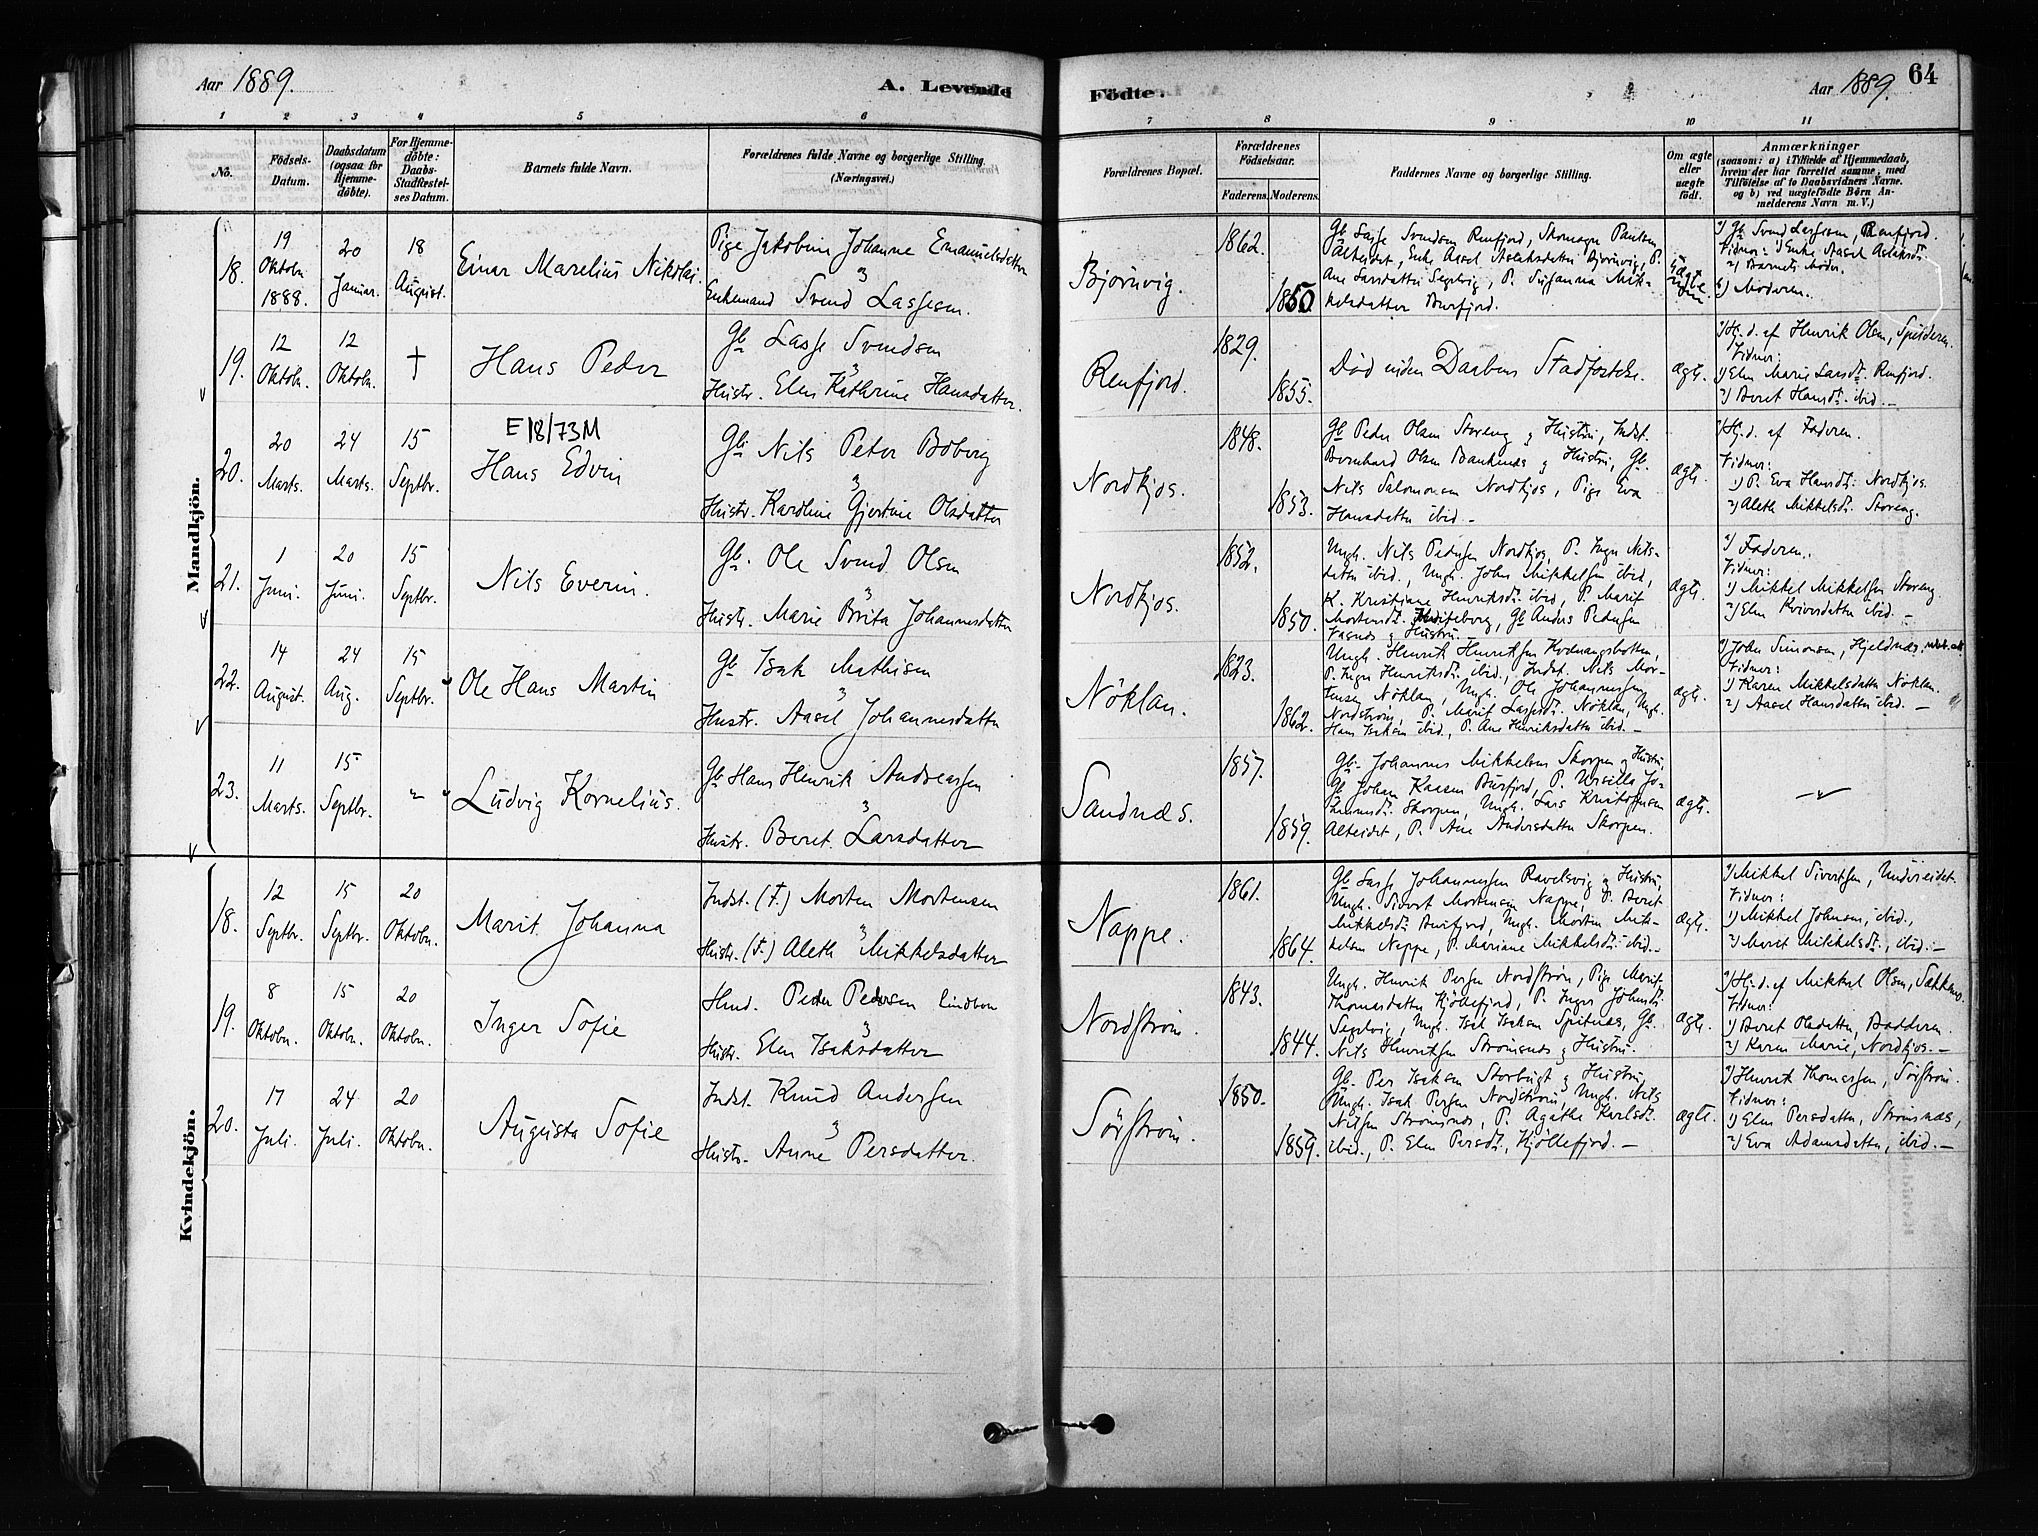 Aar 1889.
A. Levende
Födte.
Aar 1889.
64
1 2 3 4 5 6 7 8 9 10 11
No.
Födsels-
Datum.
Daabsdatum
(ogsaa for
Hjemme-
döbte).
For Hjemme-
döbte:
Daabs-
Stadfæstel-
ses Datum.
Barnets fulde Navn.
Forældrenes fulde Navne og borgerlige Stilling.
(Næringsvei.)
Forældrenes Bopæl.
Forældrenes
Födselsaar.
Faderens. Moderens.
Faddernes Navne og borgerlige Stilling.
Om ægte
eller
uægte
födt.
Anmærkninger
(saasom: a) i Tilfælde af Hjemmedaab,
hvem der har forrettet samme, med
Tilföielse af to Daabsvidners Navne.
og b) ved uægtefödte Börn An-
melderens Navn m. V.)
Mandkjön.
18.
19
Oktobr.
1888.
20
Januar.
18
August.
Einar Marelius Nikolai
Pige Jakobine Johanne Emanuelsdatter
&
Enkemand Svend Lassesen.
Bjørnvig.
1862.
1860
Gb Lasse Svendsen Renfjord,
Alteidet, Enke Aasel Aslaksdatter Bjørnvig, P.
Ane Larsdatter Segelvig, P. Susanna Mik-
kelsdatter Burfjord.
Uægte
1) Gb Svend Lassesen, Renfjord.
Vidner: 1) Enke Aasel Aslaksdt.
2) Barnets Moder.
b) Moderen.
19.
12
Oktobr.
12
Oktobr.
†
Hans Peder
Gb Lasse Svendsen
&
Hustr. Elen Kathrine Hansdatter.
Renfjord.
1829.
1855.
Død inden Daabens Stadfæstelse.
ægte.
a) Hj. d. af Henrik Olsen, Spilderen.
Vidner:
1) Elen Marie Larsdt. Renfjord.
2) Beret Hansdt. ibid. —
20.
20
Marts.
24
Marts.
15
Septbr.
E 18/73M
Hans Edvin
Gb. Nils Peter Boberg
&
Hustr. Karoline Gjertine Olsdatter
Nordkjos.
1848.
1853.
Gb Peder Olsen Storeng & Hustru, Indst.
Bernhard Olsen Bankenes & Hustru, Gb.
Nils Salomonsen Nordkjos, Pige Eva
Hansdatter ibid —
ægte.
a) Hj. d. af Faderen.
Vidner:
1) P. Eva Hansdt. Nordkjos.
2) Aleth Mikkelsdt. Storeng.
21.
1
Juni.
20
Juni.
15
Septbr.
Nils Everin.
Gb. Ole Svend Olsen
&
Hustr. Marie Brita Johannesdatter
Nordkjos.
1852.
1850.
Ungk. Nils Pedersen Nordkjos, P. Inger Nils-
datter ibid., Ungk. John Mikkelsen ibid,
K. Kristiane Henriksdt. ibid, P. Marit
Mortensdt. Gb Anders Pedersen
& Hustru.
ægte.
a) Faderen.
Vidner:
1) Mikkel Mikkelsen Storeng.
2) Elen Kviversdatter ibid. —
22.
14
August.
24
Aug.
15
Septbr.
Ole Hans Martin
Gb Isak Mathisen
&
Hustr. Aasel Johannesdatter
Nöklan.
1823.
1862.
Ungk. Henrik Henriksen Kvænangsbotten,
P. Inger Henriksdt. ibid., Indst. Nils Mor-
tensen Nöklan, Ungk. Ole Johannessen
Nordstrøm, P. Marit Lassesdt. Nöklan, Ungk.
Hans Isaksen ibid., P. Ane Henriksdatter ibid. —
ægte.
a) John Simonsen, Hjeldnæs,
Vidner:
1) Karen Mikkelsdatter Nöklan.
2) Aasel Hansdatter ibid. —
23.
11
Marts.
15
Septbr.
Ludvig Kornelius.
Gb Hans Henrik Andreassen
&
Hustr. Beret Larsdatter
Sandnæs.
1857.
1859.
Gb. Johannes Mikkelsen Skorpen & Hustru,
Gb Johan Kaasen Burfjord, P. Ursilla Jo-
hannesdt. Skorpen, Ungk. Lars Kristofersen
Alteidet, P. Ane Andersdatter Skorpen.
ægte.
Kvindekjön.
18.
12
Septbr.
15
Septbr.
20
Oktobr.
Marit Johanna
Indst. (f.) Morten Mortensen
&
Hustr. (f.) Aleth Mikkelsdatter
Nappe.
1861.
1864.
Gb Lasse Johannessen Ravelsvig & Hustru,
Ungk. Sivert Mortensen Nappe, P. Beret
Mikkelsdt. Burfjord, Ungk. Morten Mik-
kelsen Nappe, P. Mariane Mikkelsdt. ibid. —
ægte.
a) Mikkel Sivertsen, Undereidet.
Vidner:
1) Mikkel Johnsen, ibid.,
2) Maret Mikkelsdt., ibid. —
19.
8
Oktobr.
15
Oktobr.
20
Oktobr.
Inger Sofie
Hmd. Peder Pedersen Lindbom
&
Hustr. Elen Isaksdatter
Nordstrøm.
1843.
1844.
Ungk. Henrik Persen Nordstrøm, Pige Marit
Thomasdatter Kjöllefjord, P. Inger Johnsdt.
Segelvig, Ungk. Isak Isaksen Spitnæs, Gb.
Nils Henriksen Strømsnes & Hustru.
ægte.
a) Hj. d. af Mikkel Olsen,
Vidner:
1) Beret Olsdatter, Badderen.
2) Karen Marie, Nordkjos. —
20.
17
Juli.
24
Juli.
20
Oktobr.
Augusta Sofie
Indst. Knud Andersen
&
Hustr. Anne Persdatter.
Sörstrøm.
1850.
1859.
Gb. Per Isaksen Storbugt & Hustru,
Ungk. Isak Persen Nordstrøm, Ungk. Nils
Nilsen Strømsnæs, P. Agathe Karlsdt.
ibid., P. Elen Persdt., Kjöllefjord. —
ægte.
a) Henrik Thomassen, Sörstrøm.
Vidner:
1) Elen Persdatter, Strømsnæs,
2) Eva Adamsdatter, ibid. —